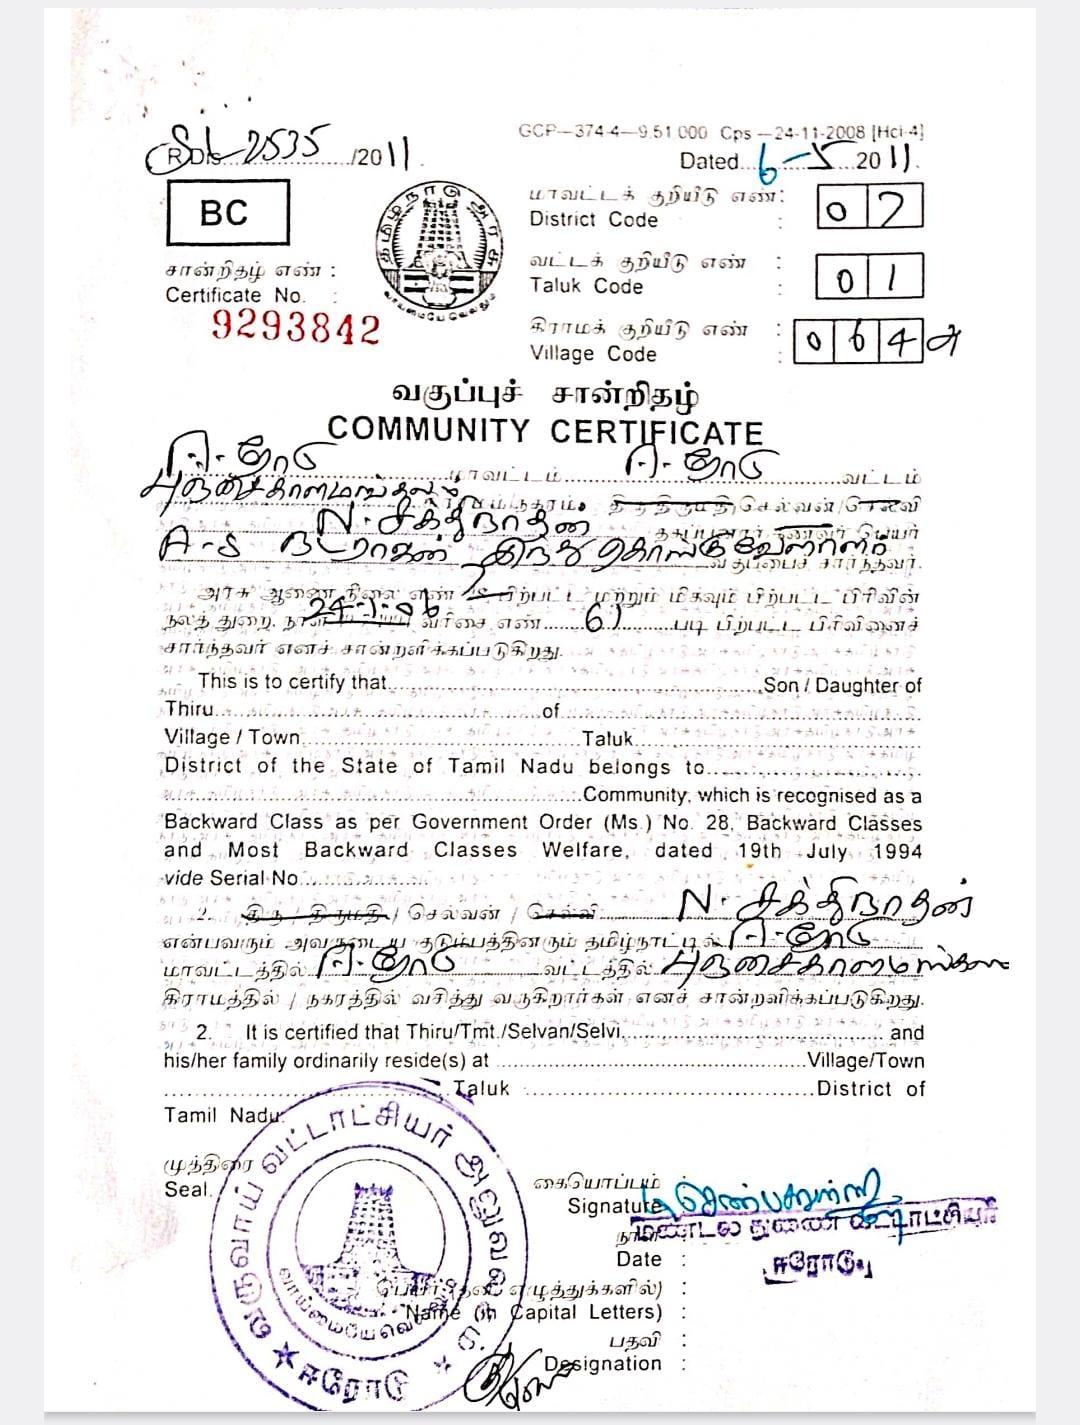 GCP—374-4—9.51.000 Cps —24-11-2008 [Hci-4]
R.Dis. 2535 /2011.
Dated 6-5 2011.
BC
தமிழ்நாடு அரசு
வாய்மையே வெல்லும்
மாவட்டக் குறியீடு எண்:
District Code : 0 2
சான்றிதழ் எண் :
Certificate No. :
9293842
வட்டக் குறியீடு எண் :
Taluk Code : 0 1
கிராமக் குறியீடு எண் :
Village Code : 0 6 4 அ
வகுப்புச் சான்றிதழ்
COMMUNITY CERTIFICATE
ஈரோடு மாவட்டம் ஈரோடு வட்டம்
திரு/திருமதி/செல்வன்/செல்வி
N. சக்திநாதன் தகப்பனார்/கணவர் பெயர்
A-S நடராஜன் இந்து கொங்கு வேளாளர் வகுப்பைச் சார்ந்தவர்.
அரசு ஆணை நிலை எண் பிற்பட்ட மற்றும் மிகவும் பிற்பட்ட பிரிவின்
நலத் துறை, நாள் வரிசை எண் 61 படி பிற்பட்ட பிரிவினைச்
சார்ந்தவர் எனச் சான்றளிக்கப்படுகிறது.
This is to certify that Son / Daughter of
Thiru of
Village / Town, Taluk
District of the State of Tamil Nadu belongs to
Community, which is recognised as a
Backward Class as per Government Order (Ms.) No. 28, Backward Classes
and Most Backward Classes Welfare, dated 19th July 1994
vide Serial No.
2. திரு / திருமதி / செல்வன் / செல்வி N. சக்திநாதன்
என்பவரும் அவருடைய குடும்பத்தினரும் தமிழ்நாட்டில் ஈரோடு
மாவட்டத்தில் ஈரோடு வட்டத்தில்
கிராமத்தில் / நகரத்தில் வசித்து வருகிறார்கள் எனச் சான்றளிக்கப்படுகிறது.
2. It is certified that Thiru/Tmt./Selvan/Selvi, and
his/her family ordinarily reside(s) at Village/Town
Taluk District of
Tamil Nadu.
முத்திரை
Seal.
வருவாய் வட்டாட்சியர் அலுவலகம்
ஈரோடு
கையொப்பம் :
Signature
மண்டல துணை வட்டாட்சியர்
ஈரோடு
நாள்
Date :
பெயர் (தனி எழுத்துக்களில்) :
Name (in Capital Letters) :
பதவி :
Designation :